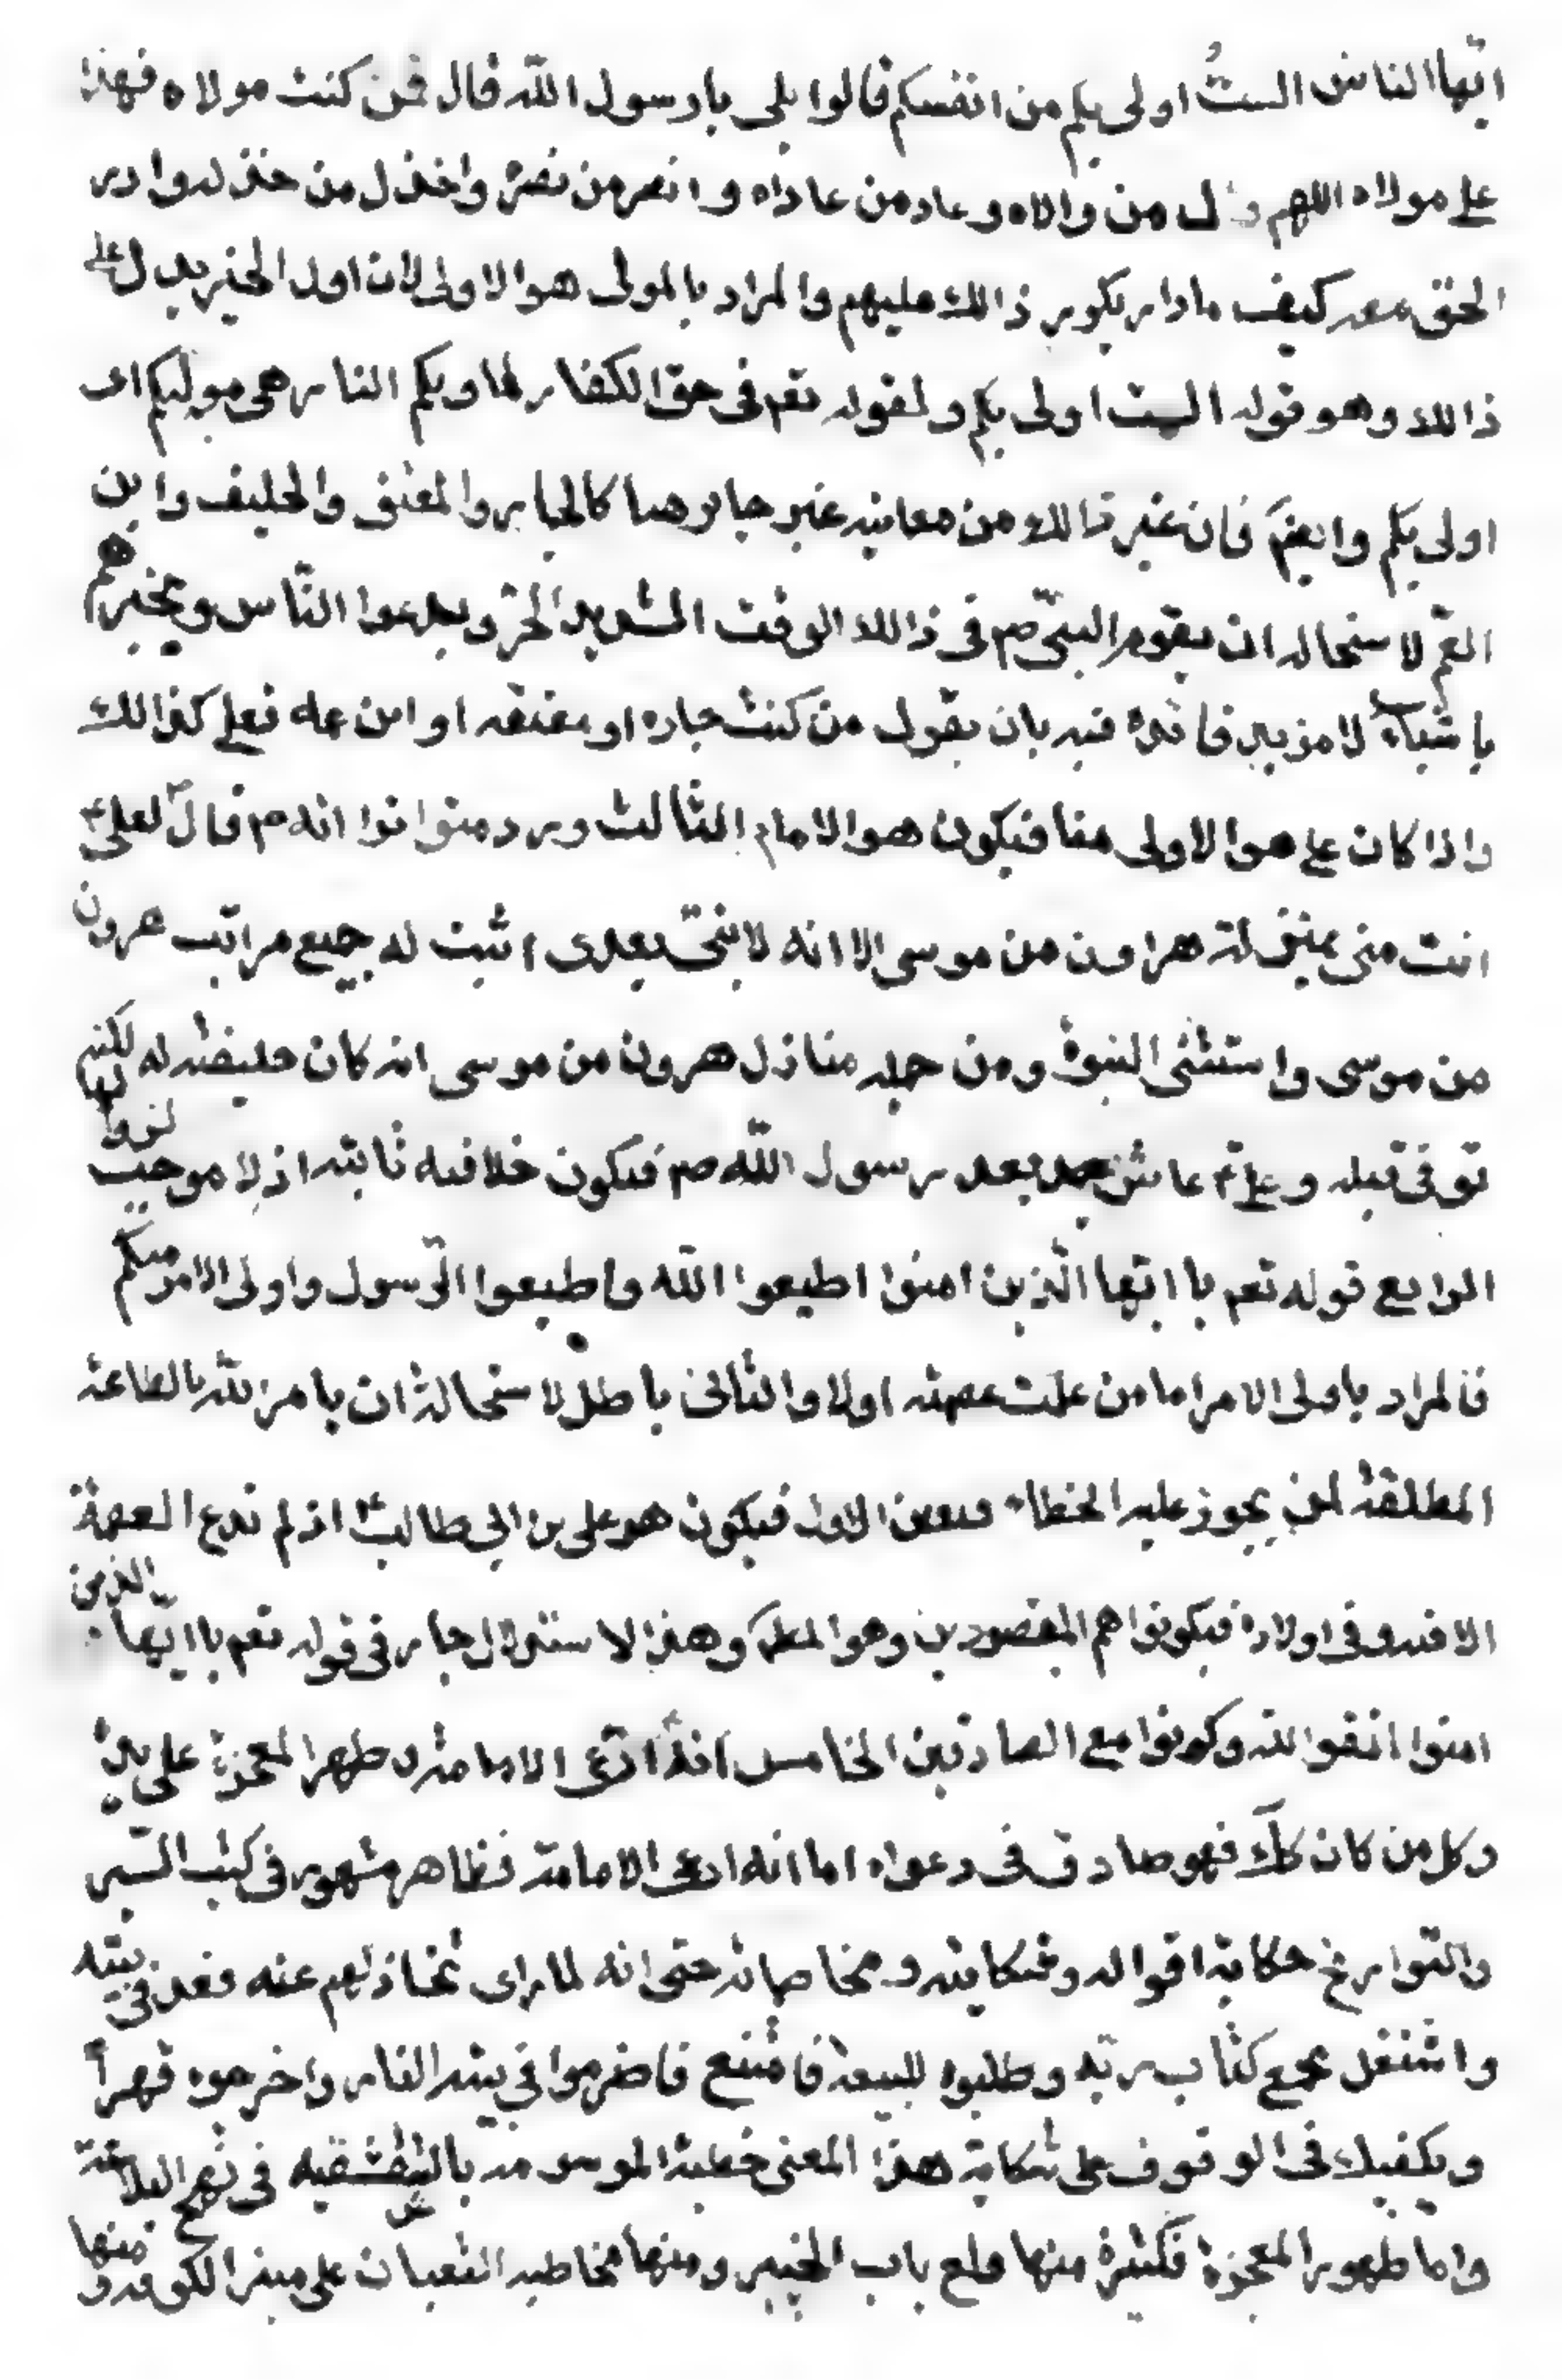 ايّها الناس الستُ اولى بكم من انفسكم قالوا بلى يا رسول اللّه قال فمن كنت مولاه فهذا
على مولاه اللهم وال من والاه وعاد من عاداه وانصر من نصره واخذل من خذله وادر
الحق معه كيف ما دار بكوير ذالك عليهم والمراد بالمولى هو الاولى لان اول الخبر يدل على
ذالك وهو قوله الست اولى بكم ولقوله تعم فى حق الكفار ماويكم النار هى موليكم اى
اولى بكم وايضَ فان غير ذالك من معانيه غير جايز هنا كالجار والمعتق والحليف وابن
العمّ لاستحاله ان يقوم النبىّ صم فى ذالك الوقت الشديد الحرّ ويدعوا النّاس ويخبرهم
باشياء لا مزيد فائده فيه بان يقول من كنت جاره او معتقه او ابن عمه فعلى كذالك
واذا كان على هو الاولى هنا فيكون هو الامام الثالث ورد متواترا انه م قال لعلى ع
انت منى بمنزلة هراون من موسى الا انه لا نبىّ بعدى اثبت له جميع مراتب هرون
من موسى واستثنى النبوة ومن جمله منازل هرون من موسى انه كان خليفته له لكنه
توفى قبله وعلى ع عاش بعد رسول اللّه صم فيكون خلافته ثابته اذ لا موجب لزوالها
الرابع قوله تعم يا ايّها الّذين امنوا اطيعوا اللّه واطيعوا الرّسول واولى الامر منكم
فالمراد باولى الامر اما من علمت عصمته اولا والثانى باطل لاستحالة ان يامر اللّه بالطاعة
المطلقة لمن يجوز عليه الخطاء فتعين الاول فيكون هو على بن ابى طالب ع اذ لم تدع العصمة
الا فيه وفى اولاده فيكونوا هم المقصودين وهو المط وهذا الاستدلال جار فى قوله تعم يا ايّها الذين
امنوا اتقوا اللّه وكونوا مع الصادقين الخامس انه ادّعى الامامة وظهر المعجزة على يده
وكل من كان كك فهو صادق فى دعواه اما انه ادعى الامامة فظاهر مشهور فى كتب السّير
والتواريخ حكاية اقواله وشكايته ومخاصمانه حتى انه لما راى تخاذلهم عنه قعد فى بيته
واشتغل بجمع كتاب ربّه وطلبوه للبيعة فامتنع فاضرموا فى بيته النار واخرجوه قهراً
ويكفيك فى الوقوف على شكاية هذا المعنى خطبة الموسومه بالشقشقيه فى نهج البلاغة
واما ظهور المعجزة فكثيرة منها قلع باب الخيبر ومنها مخاطبه الثعبان على منبر الكوفه ومنها